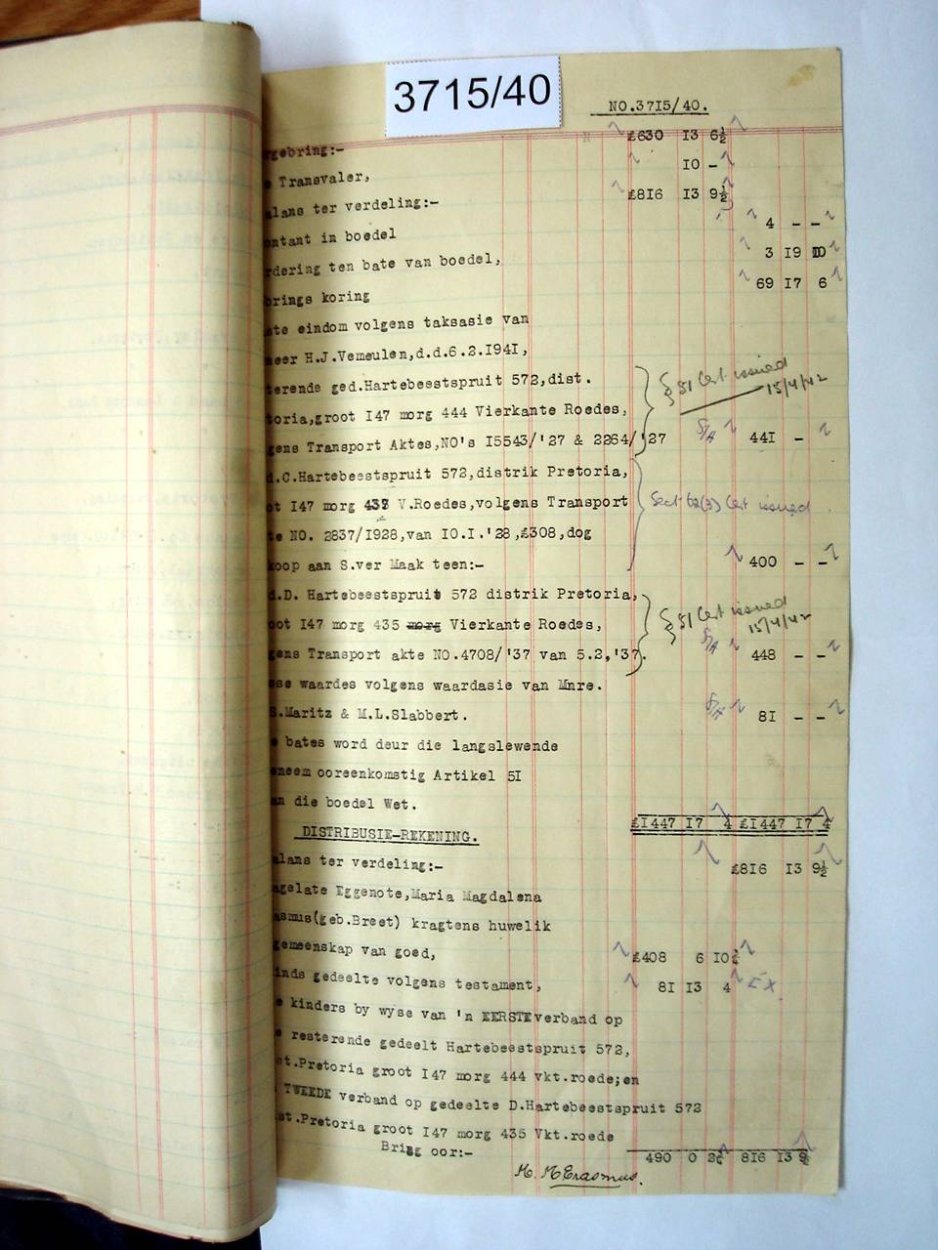 3715/40
NO.3715/40.
rgebring:- £630 13 6½
e Transvaler, 10 -
alans ter verdeling:- £816 13 9½
ntant in boedel 4 - -
rdering ten bate van boedel, 3 19 10
brings koring 69 17 6
ste eindom volgens taksasie van
neer H.J.Vemeulen,d.d.6.2.1941,
terende ged.Hartebeestspruit 572,dist. § 51 Cert issued
toria,groot 147 morg 444 Vierkante Roedes, 15/4/42
gens Transport Aktes,NO's 15543/'27 & 2264/'27 441 -
d.C.Hartebeestspruit 572,distrik Pretoria,
ot 147 morg 437 V.Roedes,volgens Transport Sect 62(3) Cert issued
te NO. 2837/1928,van 10.1.'28,£308,dog
koop aan S.ver Maak teen:- 400 - -
d.D. Hartebeestspruit 572 distrik Pretoria, § 51 Cert issued
oot 147 morg 435 morg Vierkante Roedes, 15/4/42
gens Transport akte NO.4708/'37 van 5.2,'37. 448 - -
ese waardes volgens waardasie van Mnre.
S.Maritz & M.L.Slabbert. 81 - -
e bates word deur die langslewende
eneem ooreenkomstig Artikel 51
an die boedel Wet.
£1447 17 4 £1447 17 4
DISTRIBUSIE-REKENING.
alans ter verdeling:- £816 13 9½
agelate Eggenote,Maria Magdalena
asmus(geb.Breet) kragtens huwelik
gemeenskap van goed, £408 6 10¾
inds gedeelte volgens testament, 81 13 4 EX
e kinders by wyse van 'n EERSTE verband op
e resterende gedeelt Hartebeestspruit 572,
st.Pretoria groot 147 morg 444 vkt.roede;en
TWEEDE verband op gedeelte D.Hartebeestspruit 572
st.Pretoria groot 147 morg 435 Vkt.roede
Bring oor:- 490 0 2¾ 816 13 9½
M. M Erasmus.